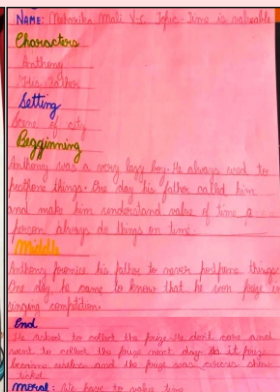 NAME: Niharika Mali V-C Topic - Time is valuable
Characters
Anthony
His father
Setting
Scene of city
Begginning
Anthony was a very lazy boy. He always used to
postpone things. One day his father called him
and make him understand value of time a
person always do things on time
Middle
Anthony promised his father to never postpone things
One day he came to know that he won prize in
singing competition.
End
He asked to collect the prize. He don't care and
went to collect the prize next day. So it
became and the prize was circus show
ticket
Moral: We have to value time